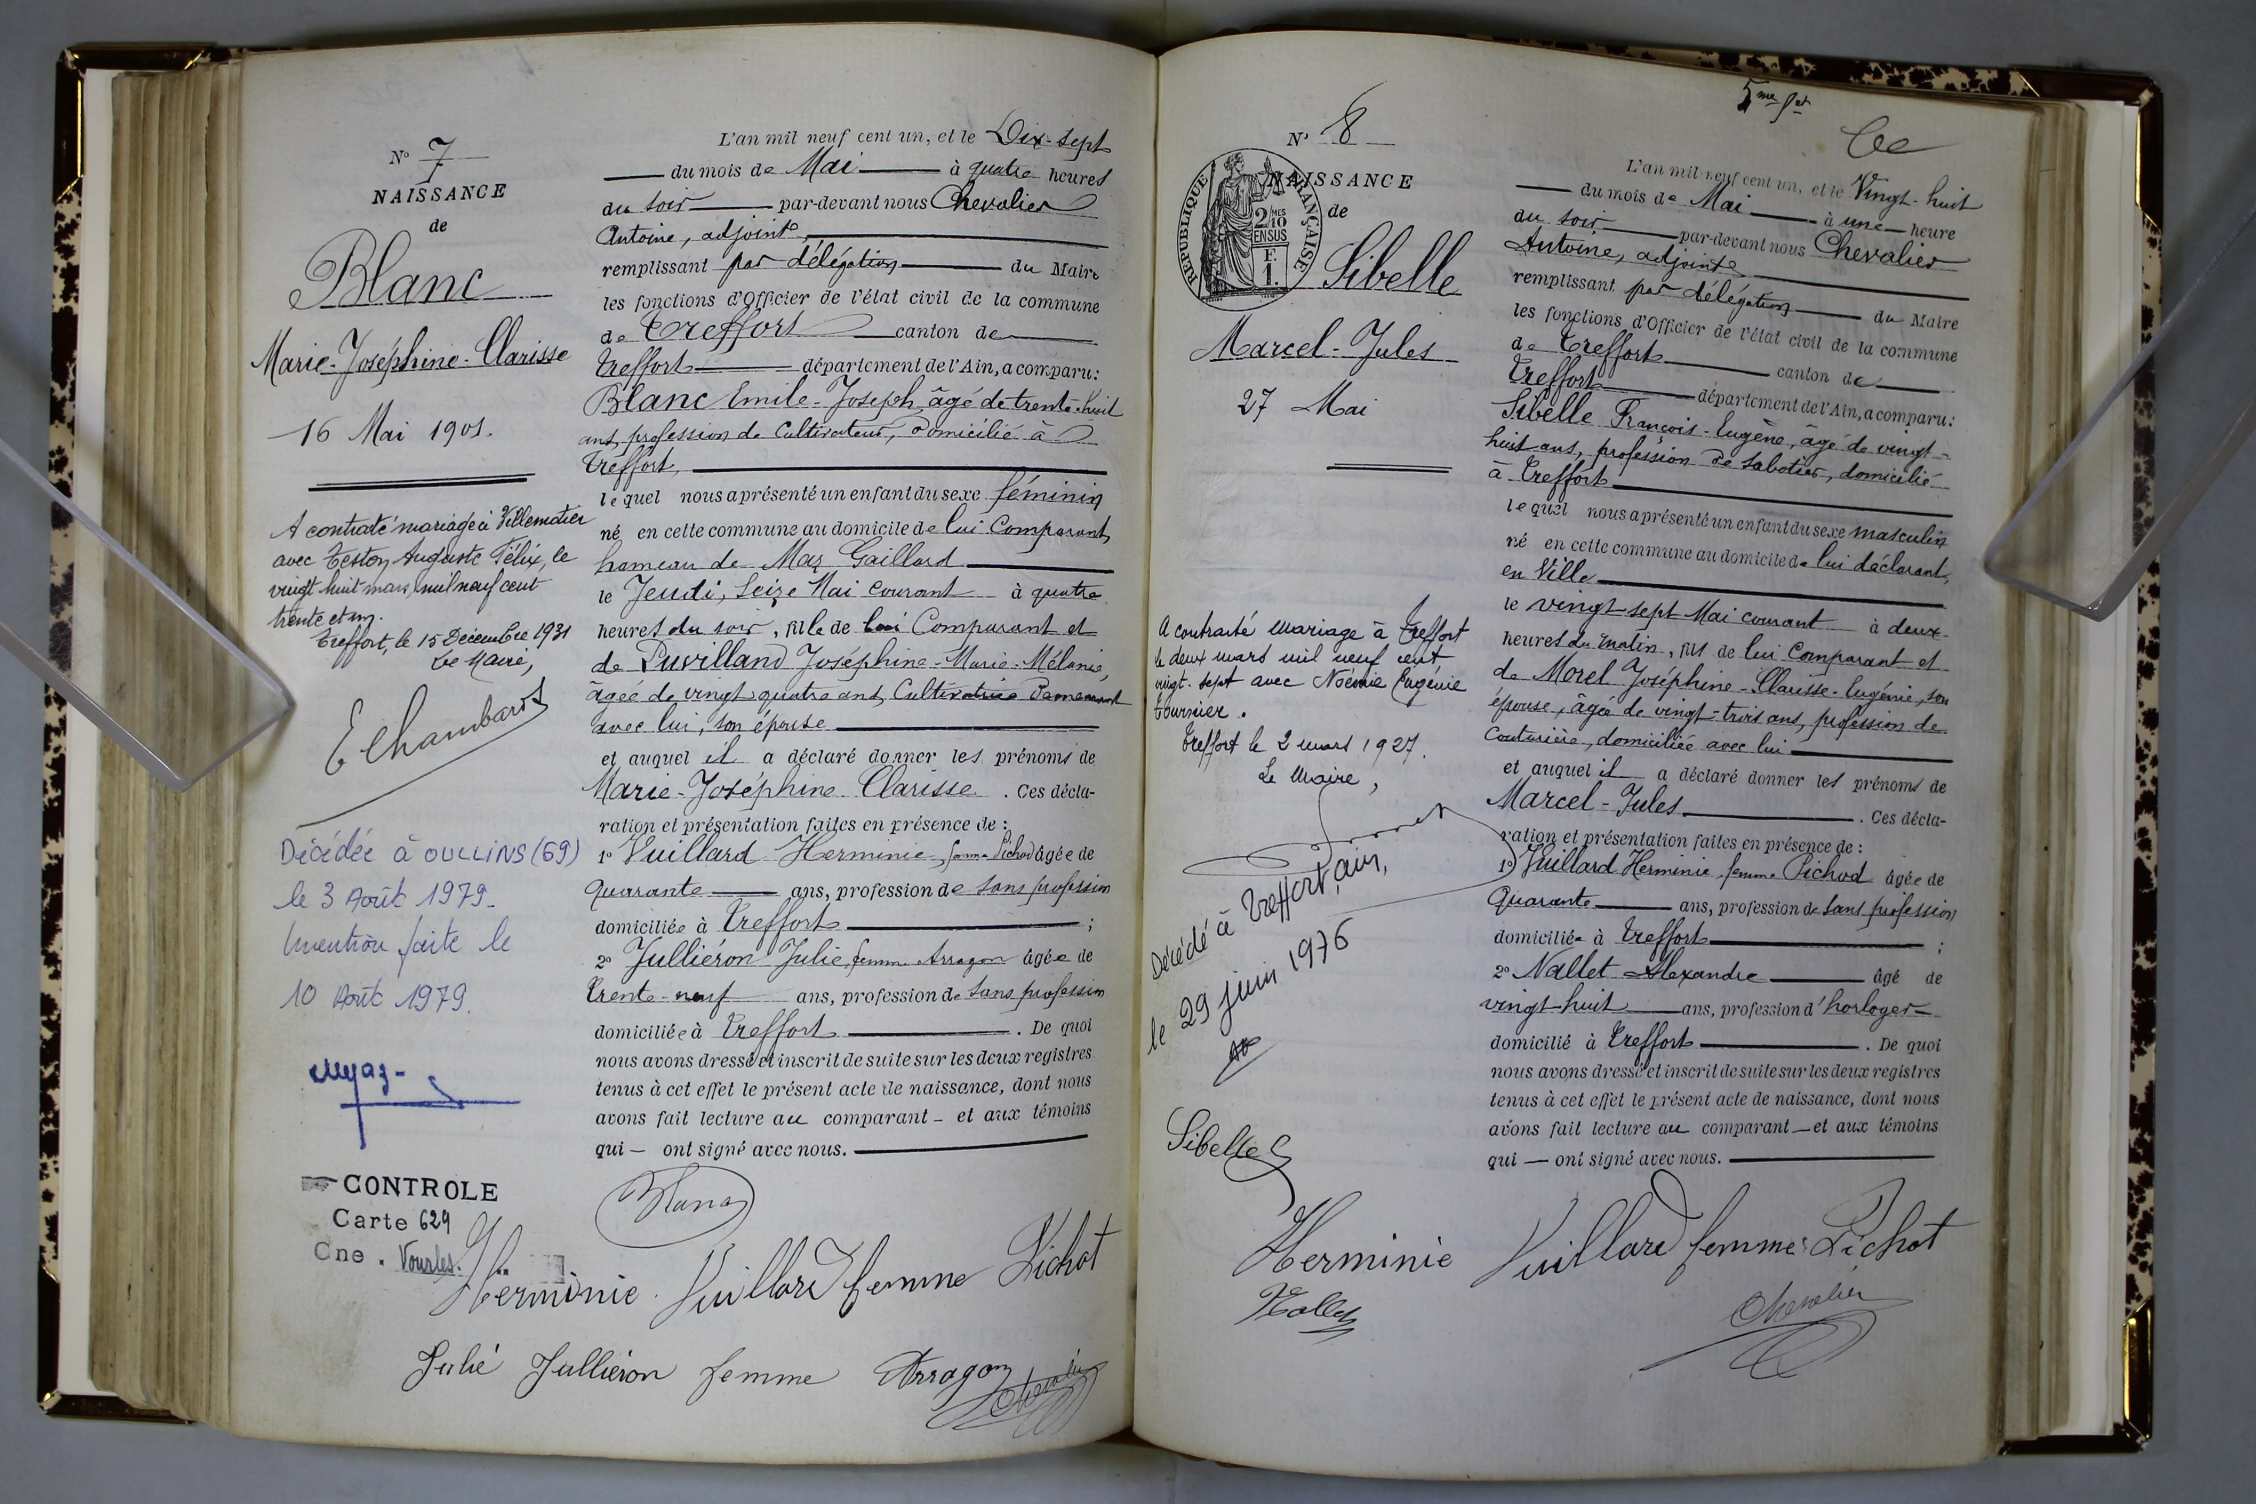 N° 7
NAISSANCE
de
Blanc
Marie-Joséphine-Clarisse
16 Mai 1901.
A contracté mariage à Villemotier
avec Teston Auguste Félix, le
vingt huit mars mil neuf cent
trente et un.
Treffort, le 15 Décembre 1931
Le Maire,
E Chambard
Décédée à OULLINS (69)
le 3 Août 1979.
Mention faite le
10 Août 1979.
CONTROLE
Carte 629
Cne. Vourles.
L'an mil neuf cent un, et le Dix-sept
du mois de Mai à quatre heures
du soir par-devant nous Chevalier
Antoine, adjoint
remplissant par délégation du Maire
les fonctions d'Officier de l'état civil de la commune
de Treffort canton de
Treffort département de l'Ain, a comparu:
Blanc Emile-Joseph, âgé de trente-huit
ans, profession de Cultivateur, domicilié à
Treffort,
lequel nous a présenté un enfant du sexe féminin
né en cette commune au domicile de lui Comparant,
hameau de Maz Gaillard
le Jeudi, Seize Mai courant à quatre
heures du soir, fille de lui Comparant et
de Puvilland Joséphine-Marie-Mélanie,
âgée de vingt quatre ans, Cultivatrice Demeurant
avec lui, son épouse
et auquel il a déclaré donner les prénoms de
Marie-Joséphine Clarisse. Ces décla-
ration et présentation faites en présence de:
1° Vuillard Herminie, femme Pichod âgée de
Quarante ans, profession de sans profession
domiciliée à Treffort;
2° Julliéron Julie, femme Arragon âgée de
Trente-neuf ans, profession de sans profession
domiciliée à Treffort. De quoi
nous avons dressé et inscrit de suite sur les deux registres
tenus à cet effet le présent acte de naissance, dont nous
avons fait lecture au comparant - et aux témoins
qui - ont signé avec nous.
Blanc
Herminie Vuillard femme Pichot
Julie Julliéron femme Arragon
Chevalier
5me
N° 8
NAISSANCE
de
RÉPUBLIQUE FRANÇAISE
2/10 MES
EN SUS
F.
1.
Sibelle
Marcel-Jules
27 Mai
A contracté mariage à Treffort
le deux mars mil neuf cent
vingt-sept avec Noémie Eugénie
Tournier.
Treffort le 2 mars 1927.
Le Maire,
Décédé à Treffort, Ain,
le 29 juin 1976
L'an mil neuf cent un, et le Vingt-huit
du mois de Mai à une heure
du soir par-devant nous Chevalier
Antoine, adjoint
remplissant par délégation du Maire
les fonctions d'Officier de l'état civil de la commune
de Treffort canton de
Treffort département de l'Ain, a comparu:
Sibelle François-Eugène, âgé de vingt-
huit ans, profession de sabotier, domicilié
à Treffort
lequel nous a présenté un enfant du sexe masculin
né en cette commune au domicile de lui déclarant,
en Ville
le vingt-sept Mai courant à deux
heures du matin, fils de lui Comparant et
de Morel Joséphine-Clarisse-Eugénie, son
épouse, âgée de vingt-trois ans, profession de
Couturière, domiciliée avec lui
et auquel il a déclaré donner les prénoms de
Marcel-Jules. Ces décla-
ration et présentation faites en présence de:
1° Vuillard Herminie femme Pichod âgée de
Quarante ans, profession de sans profession
domiciliée à Treffort;
2° Nallet Alexandre âgé de
vingt-huit ans, profession d'horloger
domicilié à Treffort. De quoi
nous avons dressé et inscrit de suite sur les deux registres
tenus à cet effet le présent acte de naissance, dont nous
avons fait lecture au comparant - et aux témoins
qui - ont signé avec nous.
Sibelle
Herminie Vuillard femme Pichot
Nallet
Chevalier